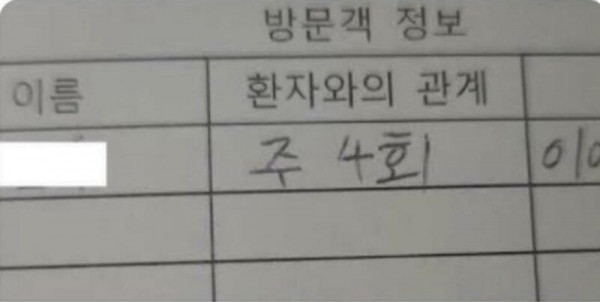 방문객 정보
이름 환자와의 관계
주 4회 010